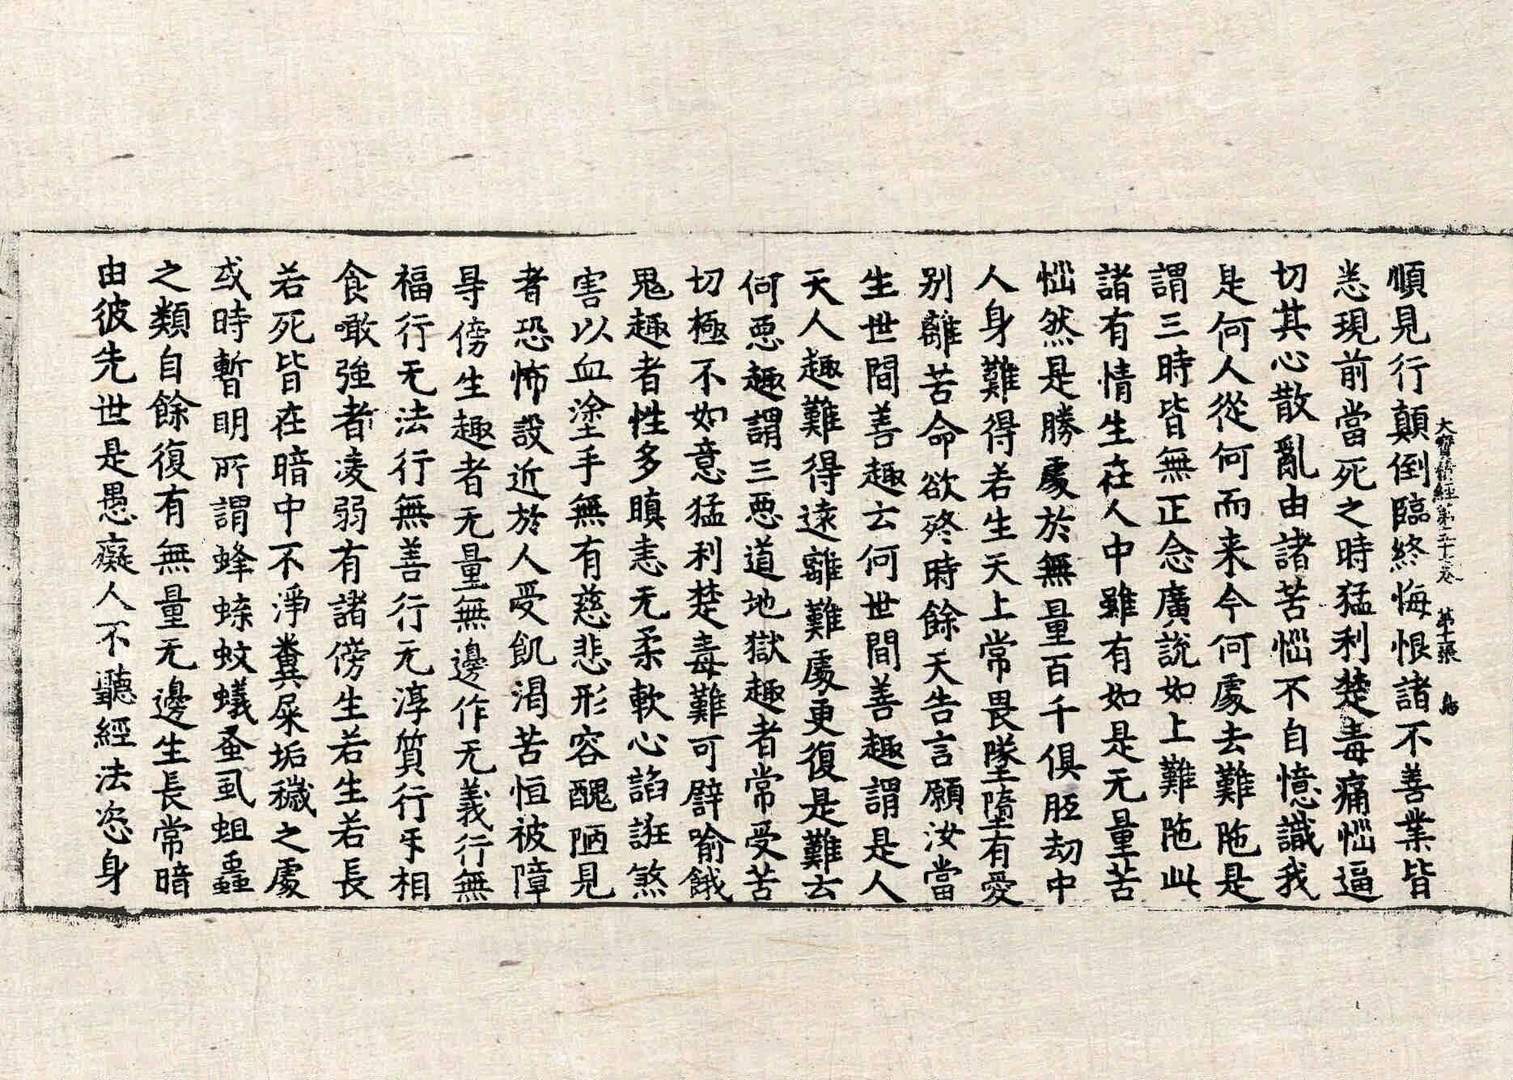 大寶積經第五十六卷 第十張 鳥
順見行顛倒臨終悔恨諸不善業皆
悉現前當死之時猛利楚毒痛惱逼
切其心散亂由諸苦惱不自憶識我
是何人從何而来今何處去難陁是
謂三時皆無正念廣說如上難陁此
諸有情生在人中雖有如是无量苦
惱然是勝處於無量百千俱胝劫中
人身難得若生天上常畏墜墮有愛
别離苦命欲終時餘天告言願汝當
生世間善趣云何世間善趣謂是人
天人趣難得遠離難處更復是難云
何惡趣謂三惡道地獄趣者常受苦
切極不如意猛利楚毒難可譬喻餓
鬼趣者性多瞋恚无柔軟心諂誑煞
害以血塗手無有慈悲形容醜陋見
者恐怖設近於人受飢渴苦恒被障
㝵傍生趣者无量無邊作无義行無
福行无法行無善行无淳質行手相
食噉強者凌弱有諸傍生若生若長
若死皆在暗中不淨糞屎垢穢之處
或時暫明所謂蜂蝾蚊蟻蚤虱蛆蟲
之類自餘復有無量无邊生長常暗
由彼先世是愚癡人不聽經法恣身